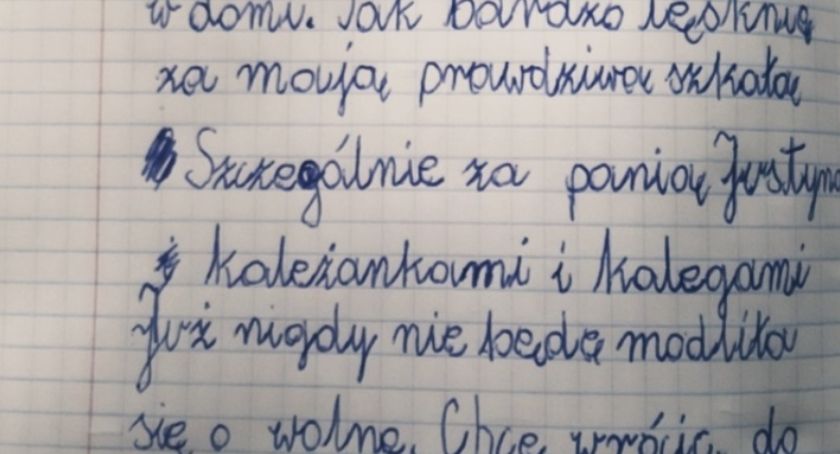 w domu. Jak bardzo tęsknię
za moją prawdziwą szkołą
Szczególnie za panią Justyną
i koleżankami i kolegami
Już nigdy nie będę modliła
się o wolne. Chcę wrócić do